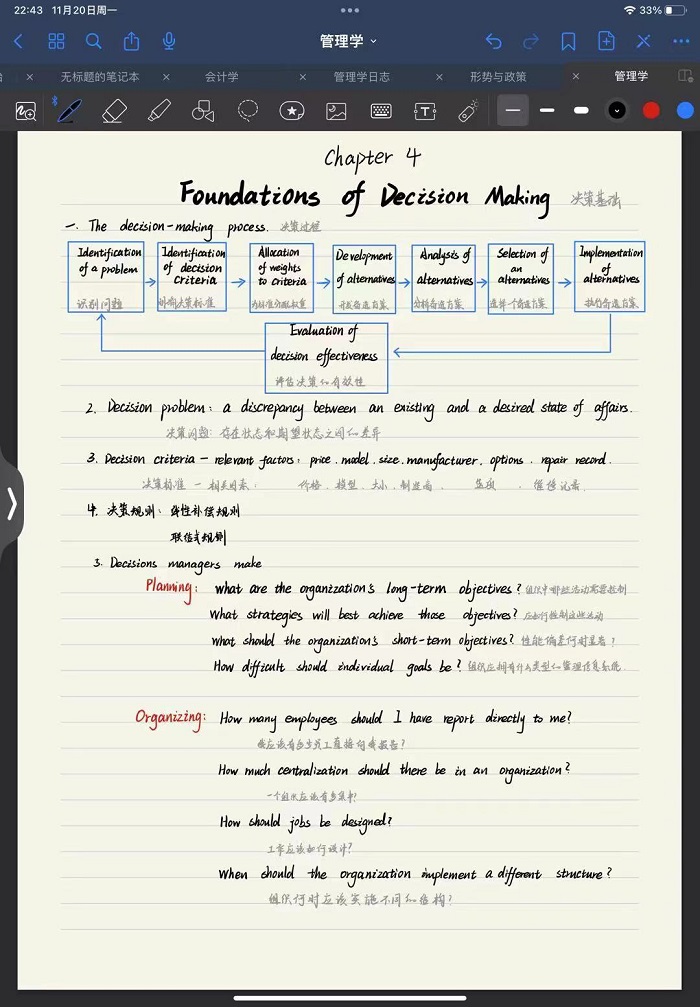 22:43 11月20日周一
33%
管理学
无标题的笔记本 × 会计学 × 管理学日志 × 形势与政策 × 管理学
Chapter 4
Foundations of Decision Making 决策基础
一. The decision-making process. 决策过程
Identification of a problem 识别问题
Identification of decision criteria 决策标准
Allocation of weights to criteria 为标准分配权重
Development of alternatives 开发备选方案
Analysis of alternatives 分析备选方案
Selection of an alternatives 选择一个备选方案
Implementation of alternatives 执行备选方案
Evaluation of decision effectiveness
评估决策的有效性
2. Decision problem: a discrepancy between an existing and a desired state of affairs.
决策问题: 存在状态和期望状态之间的差异
3. Decision criteria — relevant factors: price. model. size. manufacturer. options. repair record.
决策标准 — 相关因素: 价格. 模型. 大小. 制造商. 选项. 维修记录.
4. 决策规则: 线性补偿规则
联结式规则
3. Decisions managers make
Planning: what are the organization's long-term objectives? 组织中哪些活动需要控制
What strategies will best achieve those objectives? 应如何控制这些活动
what should the organization's short-term objectives? 性能偏差何时显著?
How difficult should individual goals be? 组织应拥有什么类型的管理信息系统
Organizing: How many employees should I have report directly to me?
我应该有多少员工直接向我报告?
How much centralization should there be in an organization?
一个组织应该有多集中?
How should jobs be designed?
工作应该如何设计?
When should the organization implement a different structure?
组织何时应该实施不同的结构?